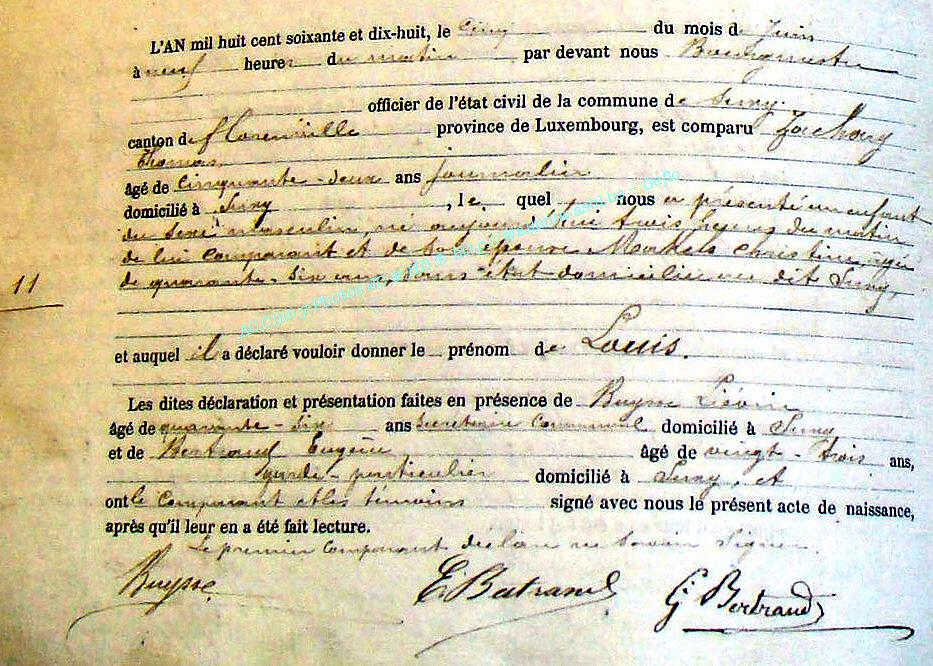 L'AN mil huit cent soixante et dix-huit, le cinq du mois de Juin
à neuf heures du matin par devant nous Bourgmestre
officier de l'état civil de la commune de Suxy.
canton de Florenville province de Luxembourg, est comparu Zachary
Thomas
âgé de cinquante-deux ans journalier
domicilié à Suxy, le quel nous a présenté un enfant
du sexe masculin, né aujourd'hui à trois heures du matin
de lui comparant et de son épouse Christine, âgée
de quarante-six ans, sans état domiciliée au dit Suxy,
11
et auquel il a déclaré vouloir donner le prénom de Louis.
Les dites déclaration et présentation faites en présence de Buysse Liévin
âgé de quarante-six ans secrétaire communal domicilié à Suxy
et de Bertrand Eugène âgé de vingt-trois ans,
garde-particulier domicilié à Suxy, et
ont le comparant et les témoins signé avec nous le présent acte de naissance,
après qu'il leur en a été fait lecture.
Le premier comparant déclare ne savoir signer.
Buysse E. Bertrand G. Bertrand